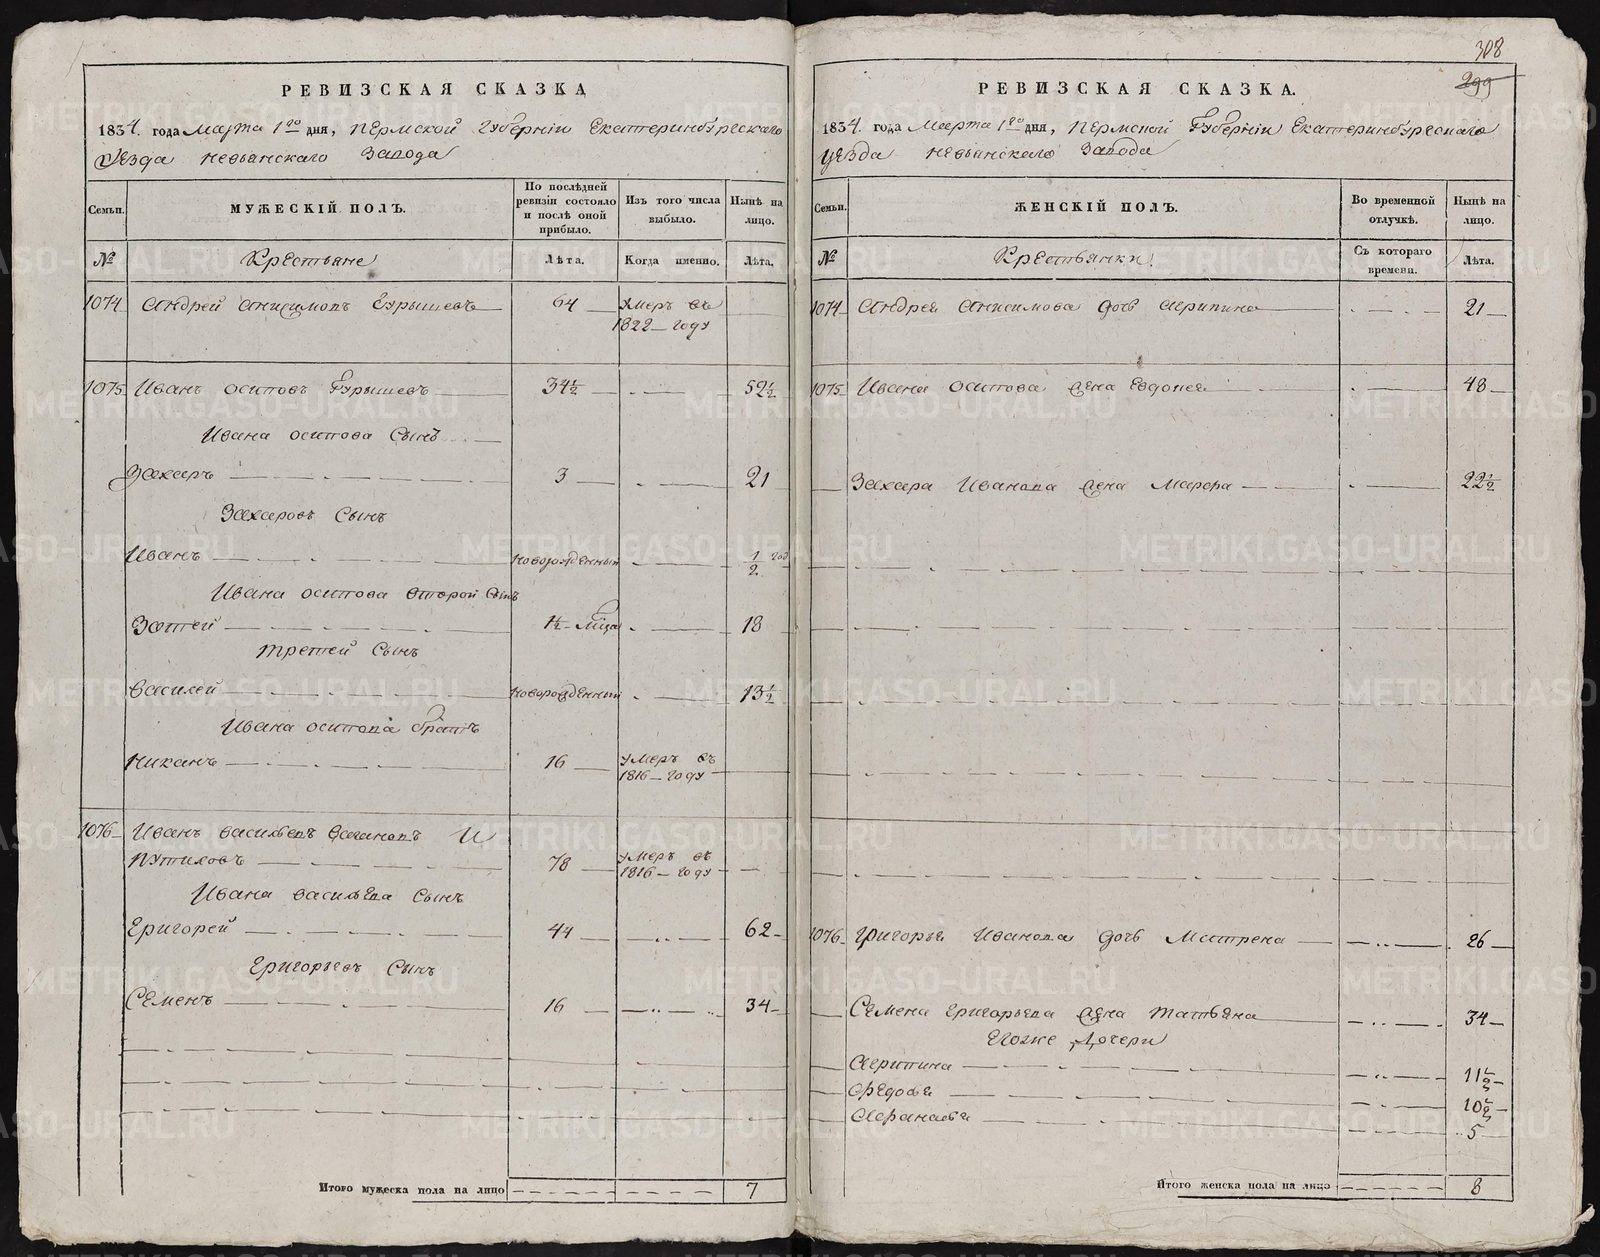 РЕВИЗСКАЯ СКАЗКА
1834. года Марта 1го дня, Пермской Губерніи Екатеринбургскаго
Уезда Невьянскаго Завода
Семьи.
МУЖЕСКІЙ ПОЛЪ.
По послѣдней ревизіи состояло и послѣ оной прибыло.
Изъ того числа выбыло.
Нынѣ на лицо.
№
Крестьяне
Лѣта.
Когда именно.
Лѣта.
1074 Андрей Анисимовъ Гурышевъ 64 Умеръ въ
1822 году
1075 Иванъ Осиповъ Гурышевъ 34½ 52½
Ивана Осипова Сынъ
Захаръ 3 21
Захаровъ Сынъ
Иванъ новорожденный ½ год
Ивана Осипова второй Сынъ
Зотей 1½ мца 18
третей Сынъ
Василей новорожденный 13½
Ивана Осипова братъ
Никанъ 16 умеръ въ
1816 году
1076 Иванъ Васильевъ Вагановъ И
Путиловъ 78 умеръ въ
1816 году
Ивана Васильева Сынъ
Григорей 44 62
Григорьевъ Сынъ
Семенъ 16 34
Итого мужеска пола на лицо 7
308
299
РЕВИЗСКАЯ СКАЗКА.
1834. года Марта 1го дня, Пермской Губерніи Екатеринбургскаго
уезда Невьянскаго Завода
Семьи.
ЖЕНСКІЙ ПОЛЪ.
Во временной отлучкѣ.
Нынѣ на лицо.
№
Крестьянки.
Съ котораго времени.
Лѣта.
1074 Андрея Анисимова дочь Агрипина 21
1075 Ивана Осипова жена Евдокея 48
Захара Иванова жена Марфа 22½
1076 Григорья Иванова дочь Матрена 26
Семена Григорьева жена Татьяна 34
Егоже дочери
Агрипина 11½
Федосья 10½
Афанасья 5
Итого женска пола на лицо 8
METRIKI.GASO-URAL.RU